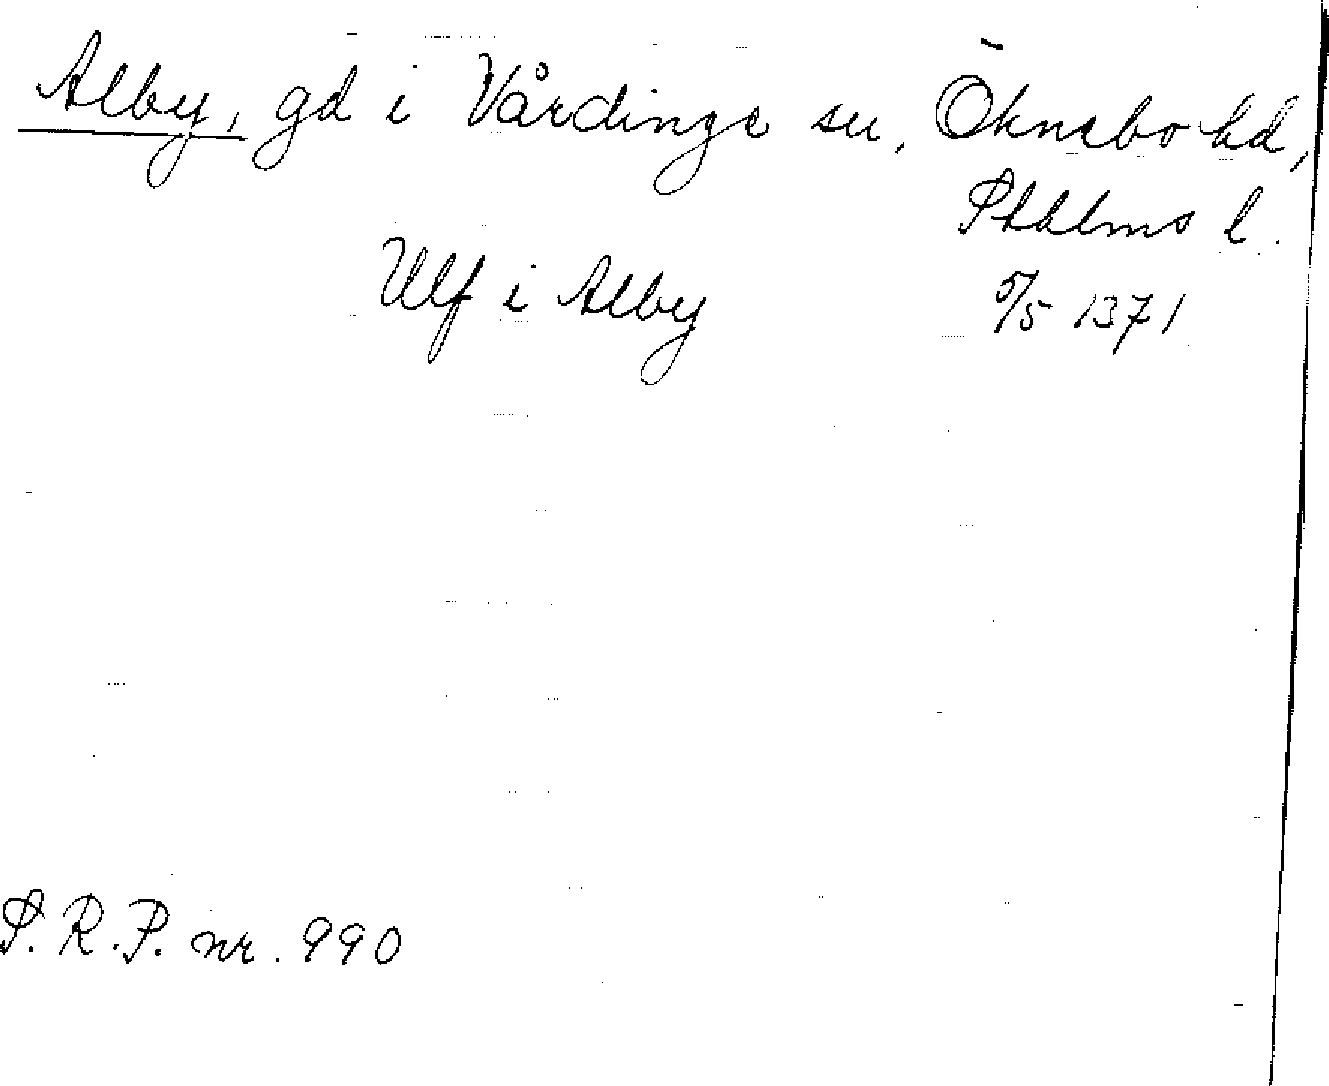 Alby, gd i Vårdinge sn, Öknebo hd,
Sthlms l.
Ulf i Alby 5/5 1371
S.R.P. nr. 990